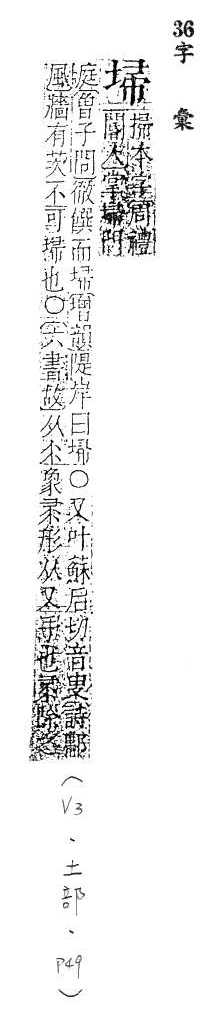 36字 彙
埽
掃本字周禮
閽人掌埽門
庭曾子問徹饌而埽增韻隄岸曰埽○又叶蘇后切音叟詩鄘
風牆有茨不可埽也○六書故从丕象帚形从又手也帚除之
(V3．土部．P49)